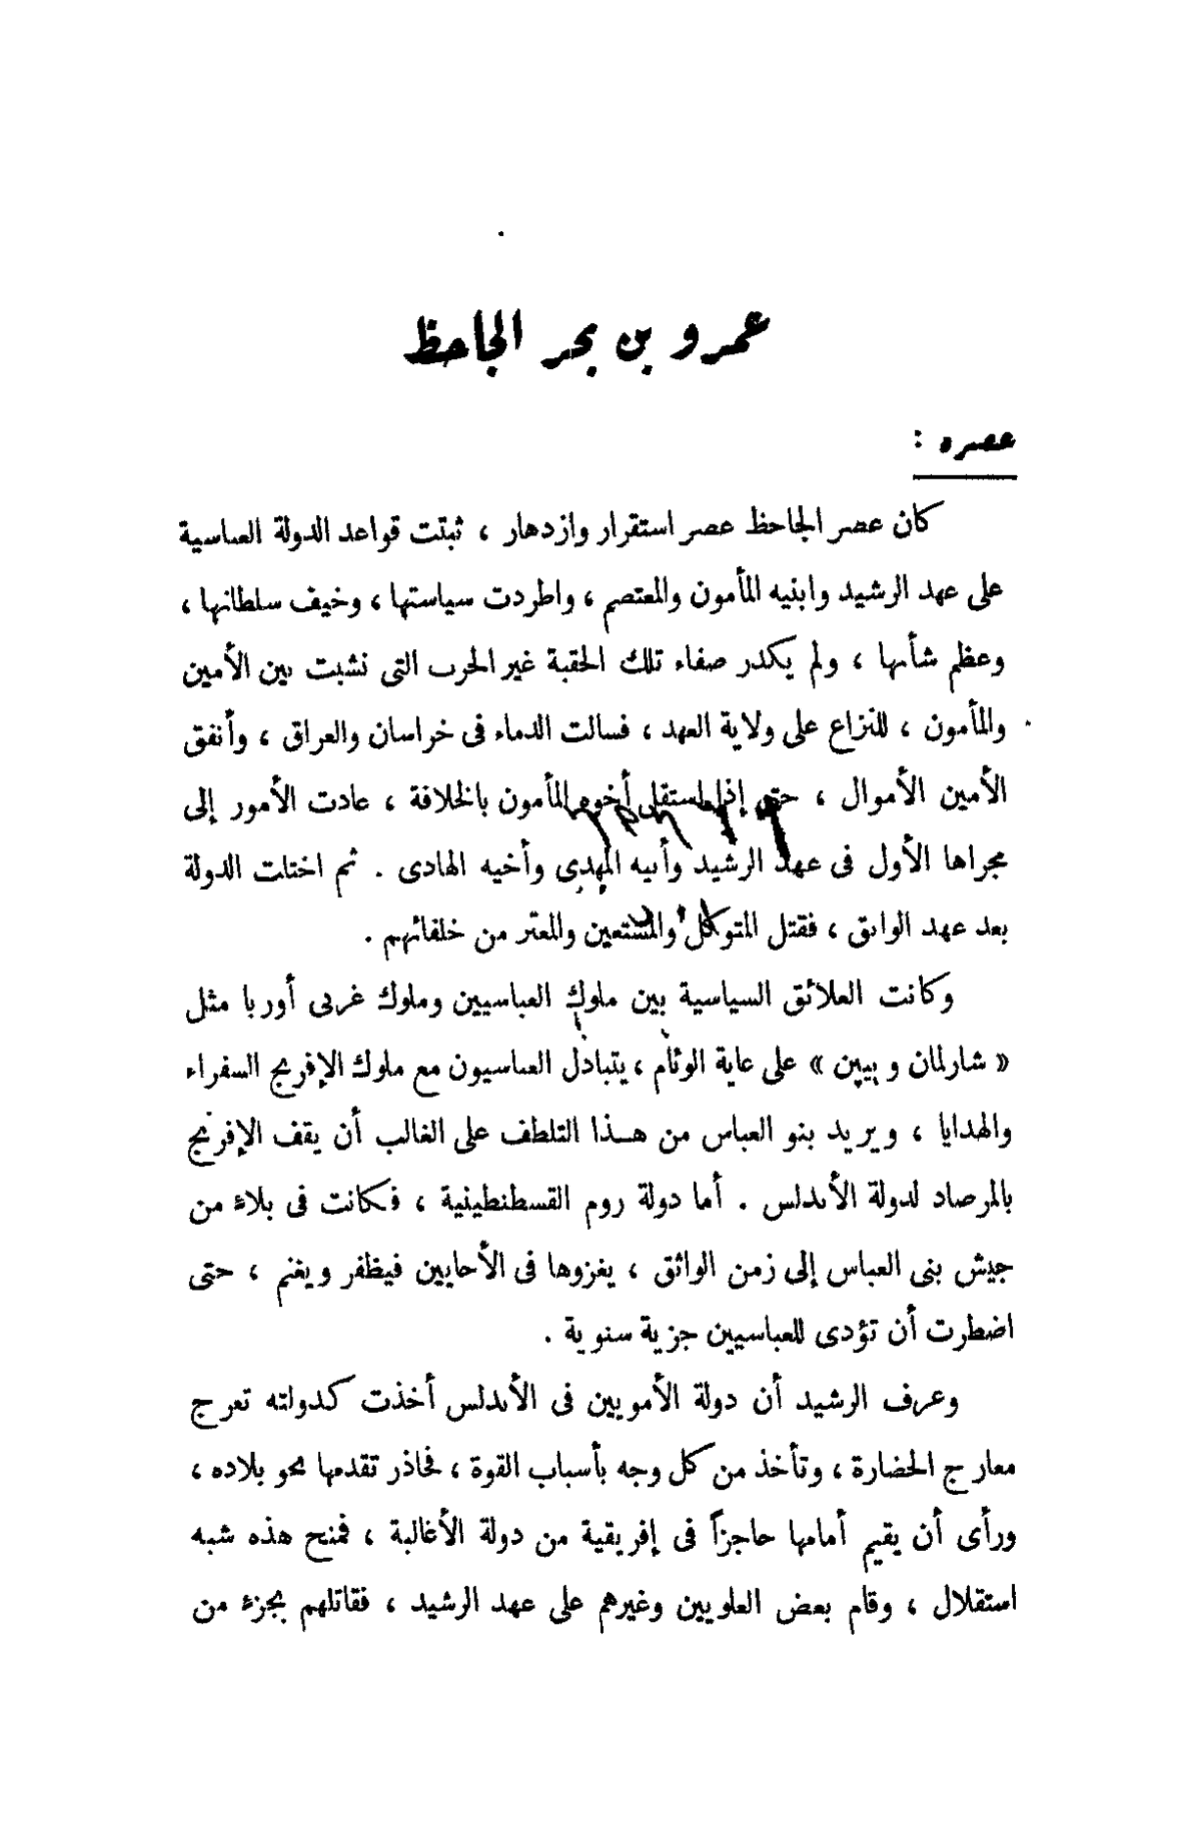 عمرو بن بحر الجاحظ
عصره :
كان عصر الجاحظ عصر استقرار وازدهار ، ثبتت قواعد الدولة العباسية
على عهد الرشيد وابنيه المأمون والمعتصم ، واطردت سياستها ، وخيف سلطانها ،
وعظم شأنها ، ولم يكدر صفاء تلك الحقبة غير الحرب التى نشبت بين الأمين
والمأمون ، للنزاع على ولاية العهد ، فسالت الدماء فى خراسان والعراق ، وأنفق
الأمين الأموال ، حتى إذا استقل أخوه المأمون بالخلافة ، عادت الأمور إلى
مجراها الأول فى عهد الرشيد وأبيه المهدى وأخيه الهادى . ثم اختلت الدولة
بعد عهد الواثق ، فقتل المتوكل والمستعين والمعتز من خلفائهم .
وكانت العلائق السياسية بين ملوك العباسيين وملوك غربى أوربا مثل
« شارلمان و بيپن » على غاية الوئام ، يتبادل العباسيون مع ملوك الإفرنج السفراء
والهدايا ، ويريد بنو العباس من هذا التلطف على الغالب أن يقف الإفرنج
بالمرصاد لدولة الأندلس . أما دولة روم القسطنطينية ، فكانت فى بلاء من
جيش بنى العباس إلى زمن الواثق ، يغزوها فى الأحايين فيظفر ويغنم ، حتى
اضطرت أن تؤدى للعباسيين جزية سنوية .
وعرف الرشيد أن دولة الأمويين فى الأندلس أخذت كدولته تعرج
معارج الحضارة ، وتأخذ من كل وجه بأسباب القوة ، فحاذر تقدمها نحو بلاده ،
ورأى أن يقيم أمامها حاجزاً فى إفريقية من دولة الأغالبة ، فمنح هذه شبه
استقلال ، وقام بعض العلويين وغيرهم على عهد الرشيد ، فقاتلهم بجزء من